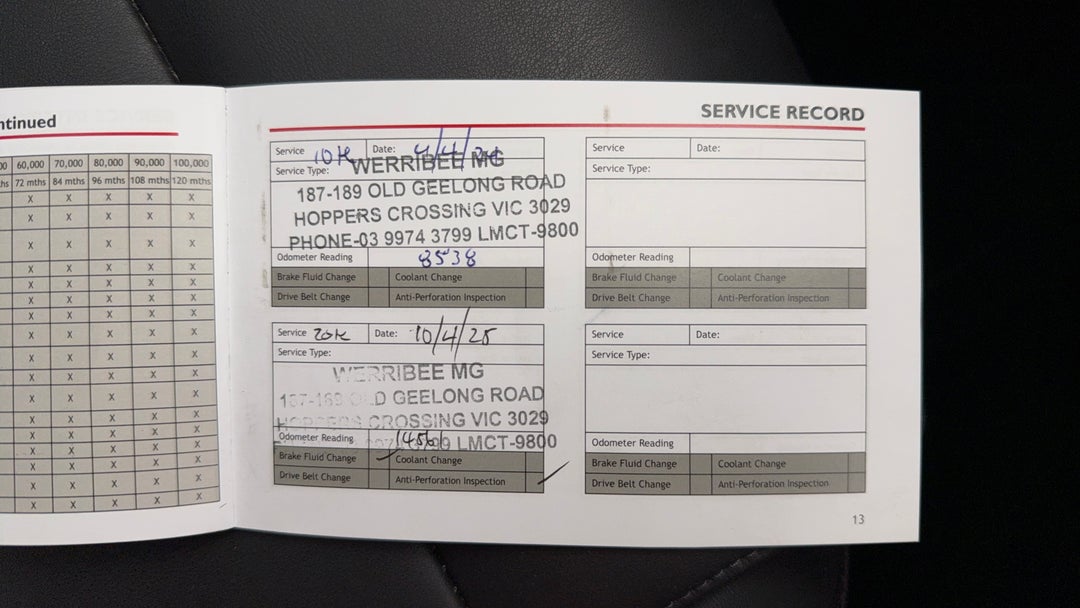 ntinued
60,000 70,000 80,000 90,000 100,000
72 mths 84 mths 96 mths 108 mths 120 mths
X X X X X
X X X X X
X X X X X
X X X X X
X X X X X
X X X X X
X X X X X
X X X X X
X X X X X
X X X X X
X X X X X
X X X X X
X X X X X
X X X X X
X X X X X
X X X X X
X X X X X
SERVICE RECORD
Service 10K Date: 4/4/
Service Type:
WERRIBEE MG
187-189 OLD GEELONG ROAD
HOPPERS CROSSING VIC 3029
PHONE-03 9974 3799 LMCT-9800
Odometer Reading 8538
Brake Fluid Change Coolant Change
Drive Belt Change Anti-Perforation Inspection
Service 20K Date: 10/4/25
Service Type:
WERRIBEE MG
OLD GEELONG ROAD
HOPPERS CROSSING VIC 3029
Odometer Reading
LMCT-9800
Brake Fluid Change Coolant Change
Drive Belt Change Anti-Perforation Inspection
Service Date:
Service Type:
Odometer Reading
Brake Fluid Change Coolant Change
Drive Belt Change Anti-Perforation Inspection
Service Date:
Service Type:
Odometer Reading
Brake Fluid Change Coolant Change
Drive Belt Change Anti-Perforation Inspection
13